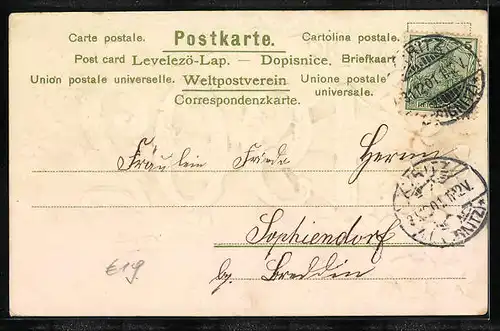 Carte postale. Postkarte. Cartolina postale.
Post card Levelezö-Lap. — Dopisnice. Briefkaart
Union postale universelle. Weltpostverein Unione postale
Correspondenzkarte. universale.
5
Fräulein Frieda Herm
Sophiendorf
bg. Breddin
€19